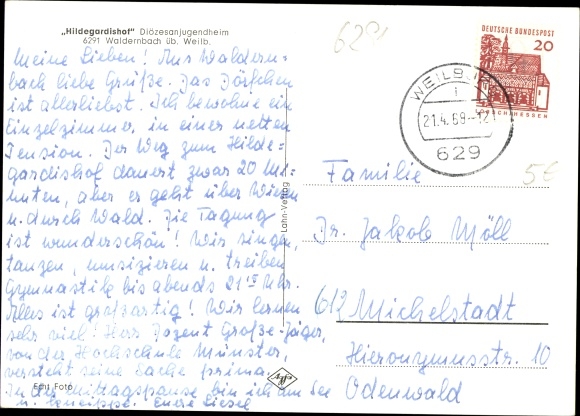 „Hildegardishof" Diözesanjugendheim
6291 Waldernbach üb. Weilb.
Meine Lieben! Aus Waldern-
bach liebe Grüße. Das Dörfchen
ist allerliebst. Ich bewohne ein
Einzelzimmer in einer netten
Pension. Der Weg zum Hilde-
gardishof dauert zwar 20 Mi-
nuten, aber es geht über Wiesen
u. durch Wald. Die Tagung
ist wunderschön! Wir singen,
tanzen, musizieren u. treiben
Gymnastik bis abends 21 15 Uhr.
Alles ist großartig! Wir lernen
sehr viel! Herr Dozent Große-Jäger,
von der Hochschule Münster,
versteht seine Sache prima.
In der Mittagspause bin ich am See
u. kneippe. Eure Liesel
Echt Foto
Lahn-Verlag
Agfa
6291
DEUTSCHE BUNDESPOST
20
LORSCH/HESSEN
WEILBURG
1
21.4.69-12
629
5€
Familie
Dr. Jakob Möll
612 Michelstadt
Hieronymusstr. 10
Odenwald